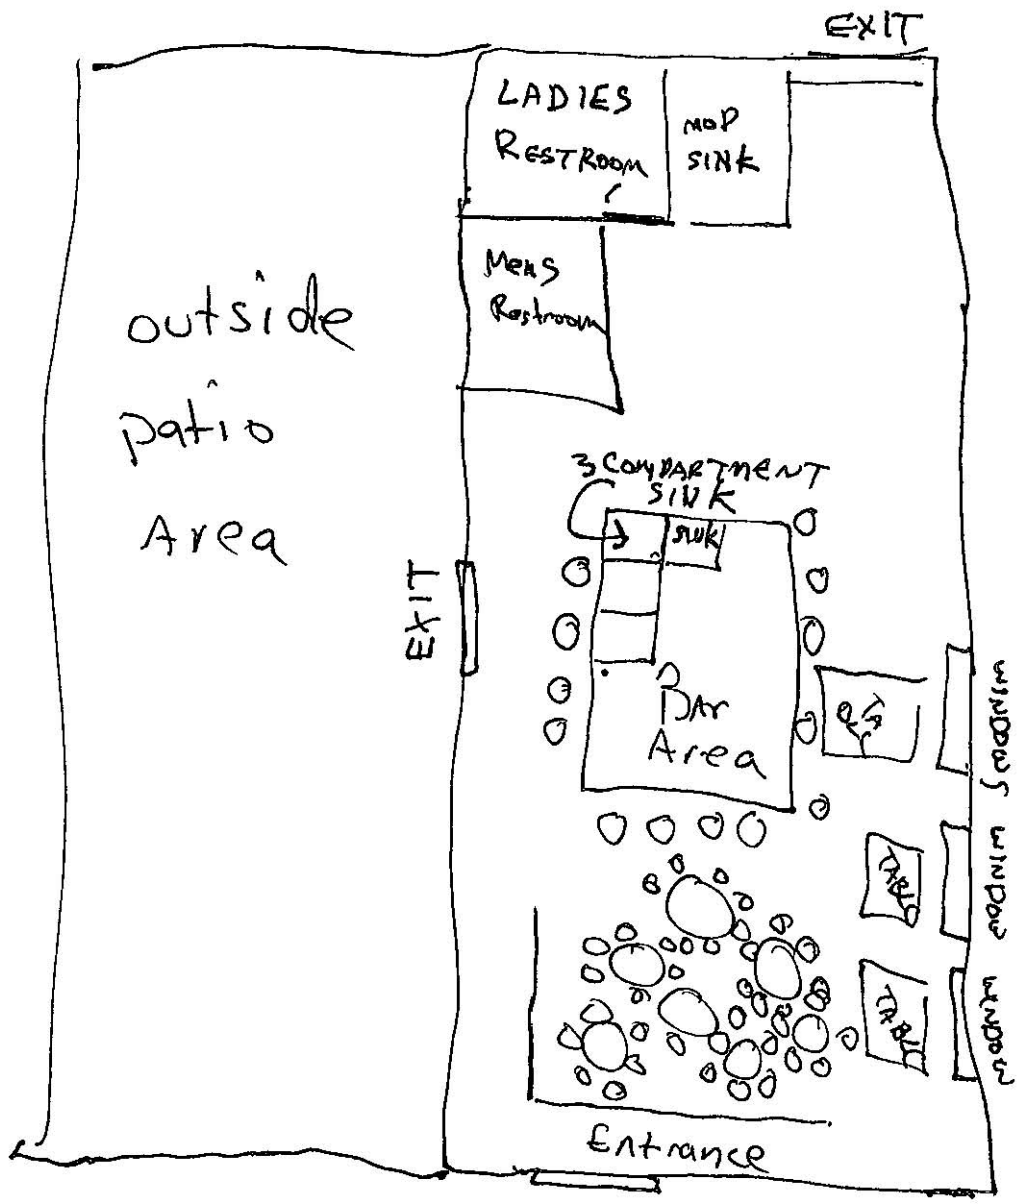 EXIT
LADIES
RESTROOM
MOP
SINK
Mens
Restroom
outside
patio
Area
3 COMPARTMENT
SINK
SINK
EXIT
Bar
Area
WINDOW
TABLE
WINDOW
TABLE
WINDOW
Entrance